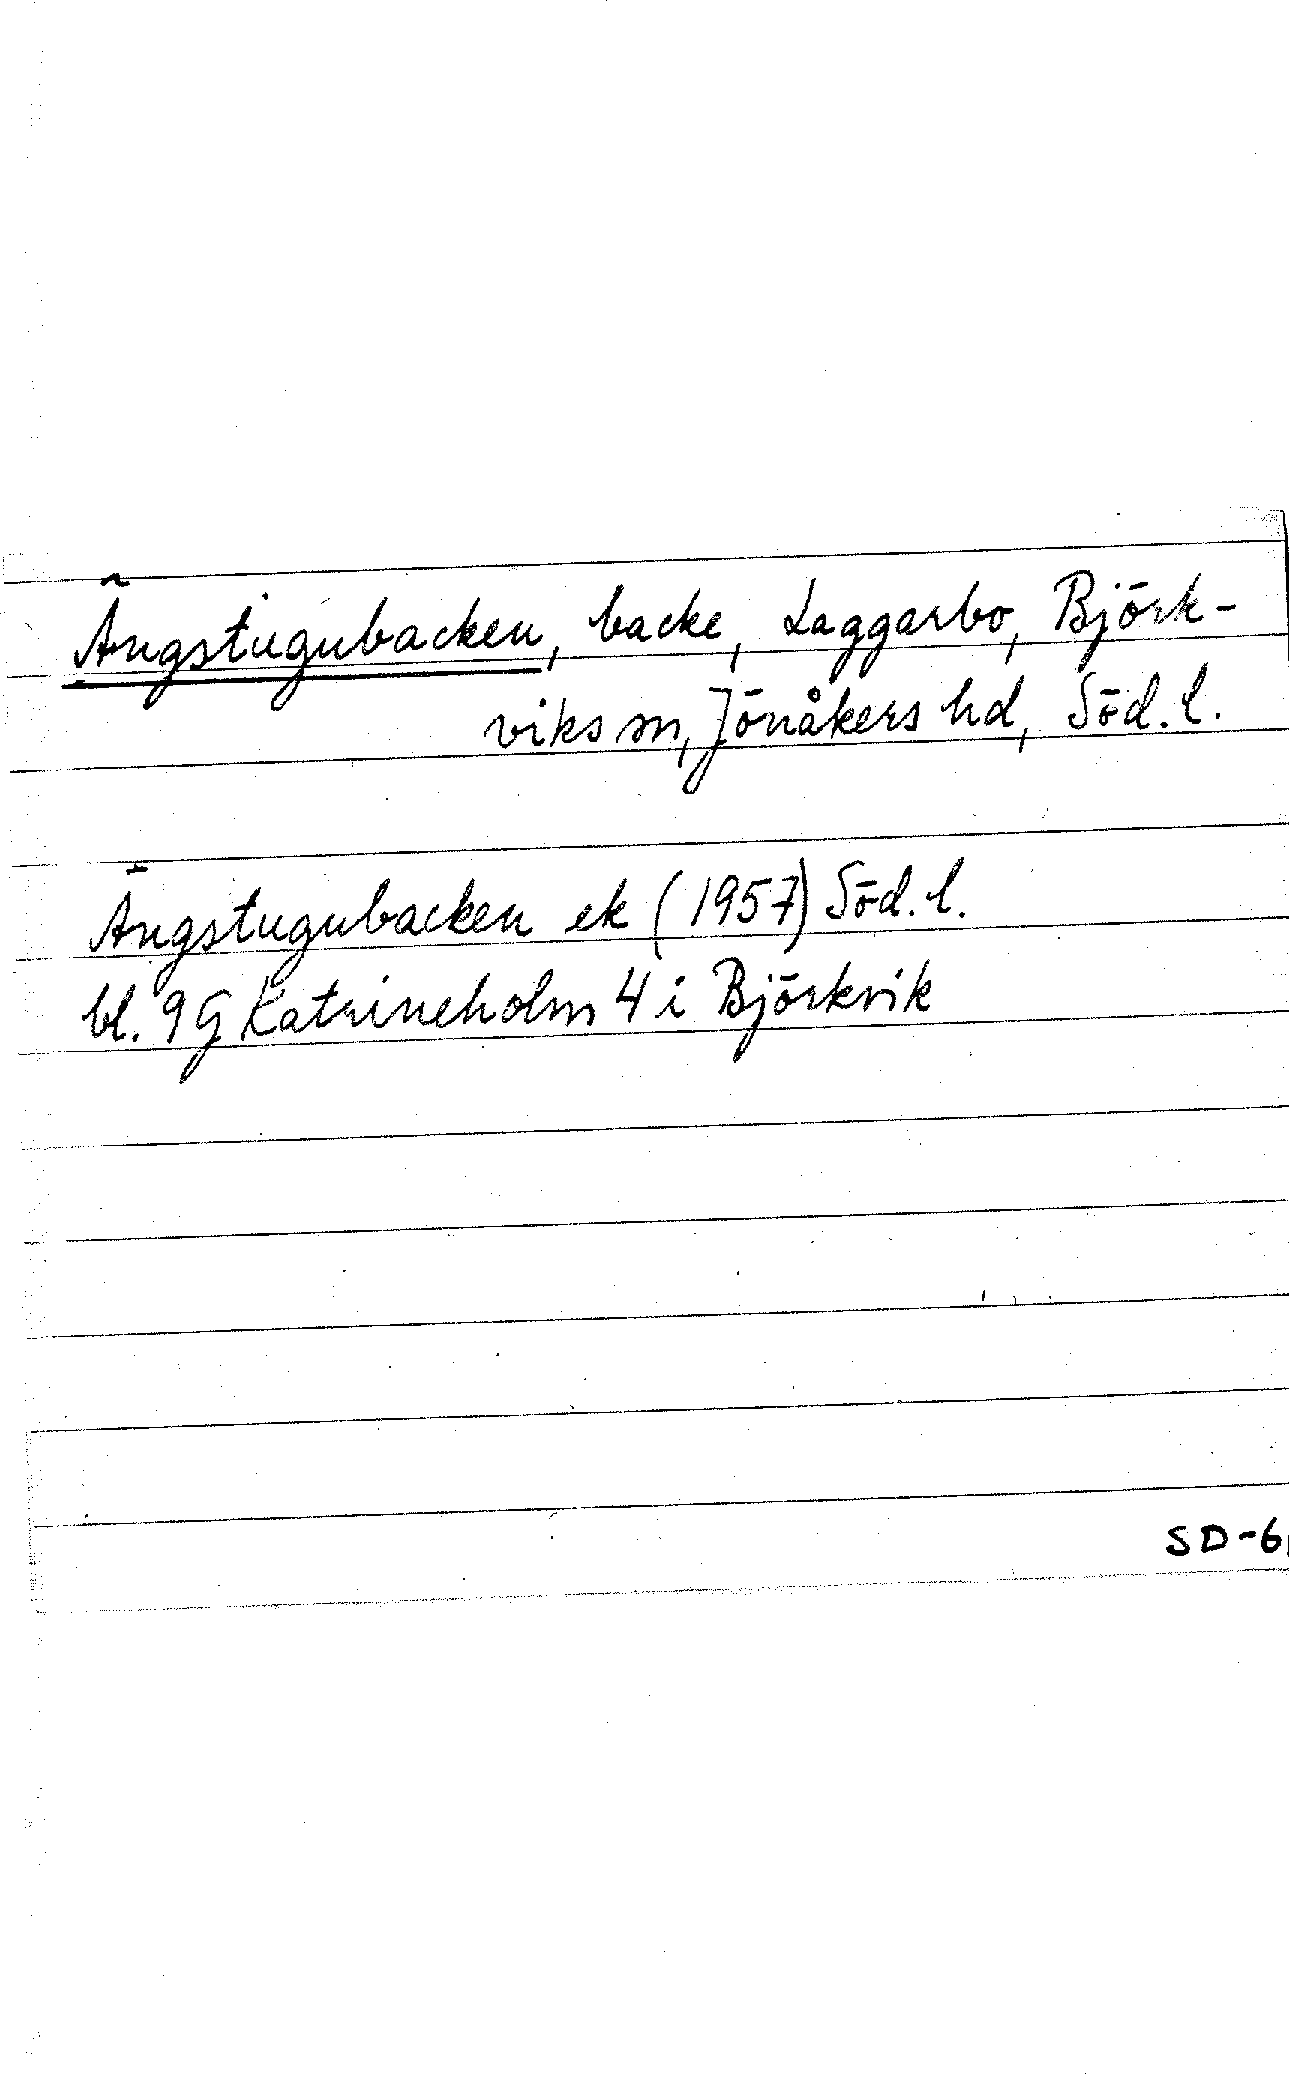 Ängstugubacken, backe, Laggarbo, Björk-
viks sn, Jönåkers hd, Söd. l.
Ängstugubacken ek (1957) Söd. l.
bl. 9G Katrineholm 4 i Björkvik
SD-6